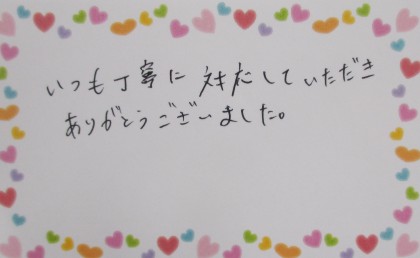 いつも丁寧に対応していただき
ありがとうございました。